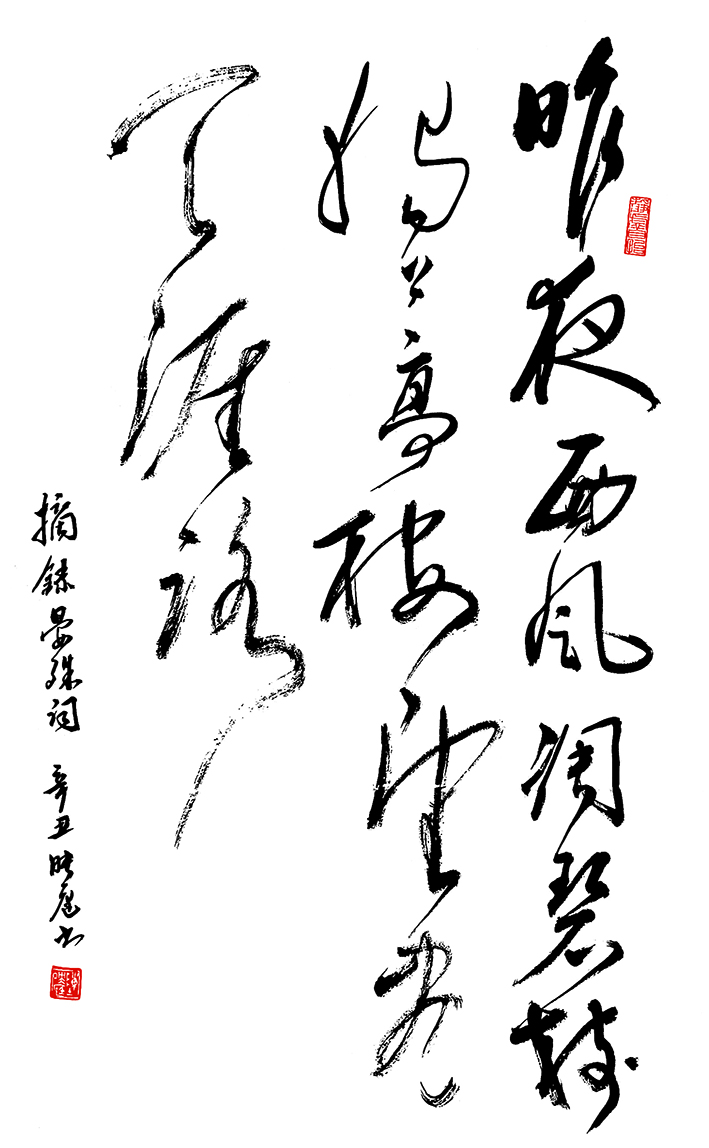 昨夜西风调碧树
独上高楼望尽
天涯路
摘录晏殊词 辛丑 晓庭书